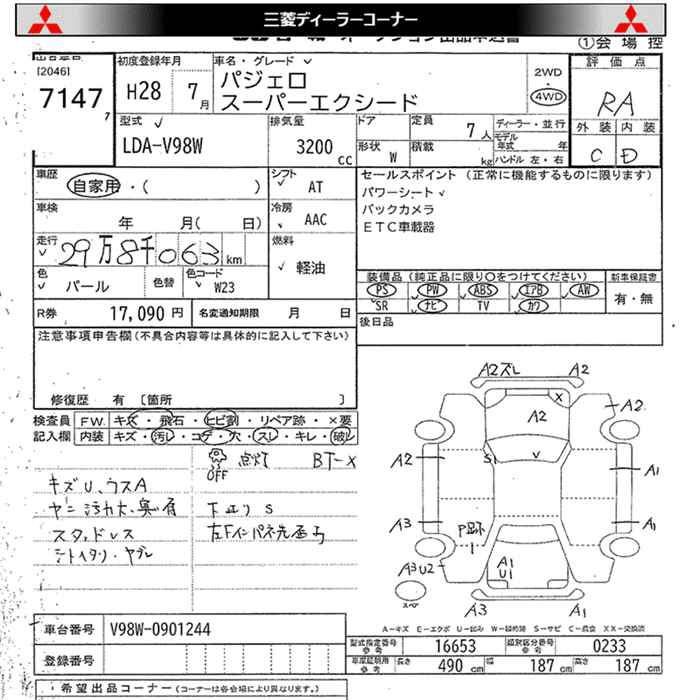 三菱ディーラーコーナー
①会場控
[2046]
7147
7
初度登録年月
H28 7月
車名・グレード
パジェロ
スーパーエクシード
2WD
・
4WD
評価点
RA
外装 内装
C D
型式
LDA-V98W
排気量
3200 cc
ドア
定員 7人
ディーラー・並行
モデル年式 年
形状 W
積載 kg
ハンドル 左・右
車歴
自家用・( )
シフト
AT
セールスポイント (正常に機能するものに限ります)
パワーシート
バックカメラ
ETC車載器
車検
年 月( 日)
冷房
AAC
走行
29万8千063 km
燃料
軽油
色
パール
色替
色コード
W23
装備品(純正品に限り○をつけてください)
PS PW ABS エアB AW
SR ナビ TV カワ
新車保証書
有・無
R券 17,090円
名変通知期限 月 日
後日品
注意事項申告欄(不具合内容等は具体的に記入して下さい)
修復歴 有 [箇所 ]
検査員記入欄
FW. キズ・飛石・ヒビ割・リペア跡・×要
内装 キズ・汚レ・コゲ・穴・スレ・キレ・破レ
OFF 点灯 BT-X
キズU、ウスA
ヤニ汚れ大・臭有
スタッドレス
シートイタリ・ヤブレ
下廻りS
A2ズレ A2
A2 X A2
A2 S1 V A1
A3 P跡 1 A1
A3U2 A1 U1
スペア
A3 A1
A-キズ E-エクボ U-凹み W-補修跡 S-サビ C-腐食 XX-交換済
車台番号 V98W-0901244
登録番号
型式指定番号 参考 16653
類別区分番号 参考 0233
車庫証明用 参考 長さ 490 cm 幅 187 cm 高さ 187 cm
希望出品コーナー(コーナーは各会場により異なります。)